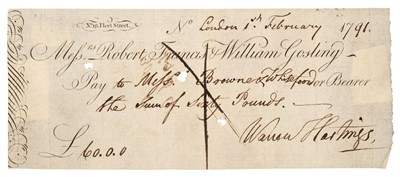 Fleet Street.
No London 1st February 1791.
Messrs Robert, Francis & William Gosling
Pay to Messrs Browne & or Bearer
the Sum of Sixty Pounds.
£60.0.0
Warren Hastings.